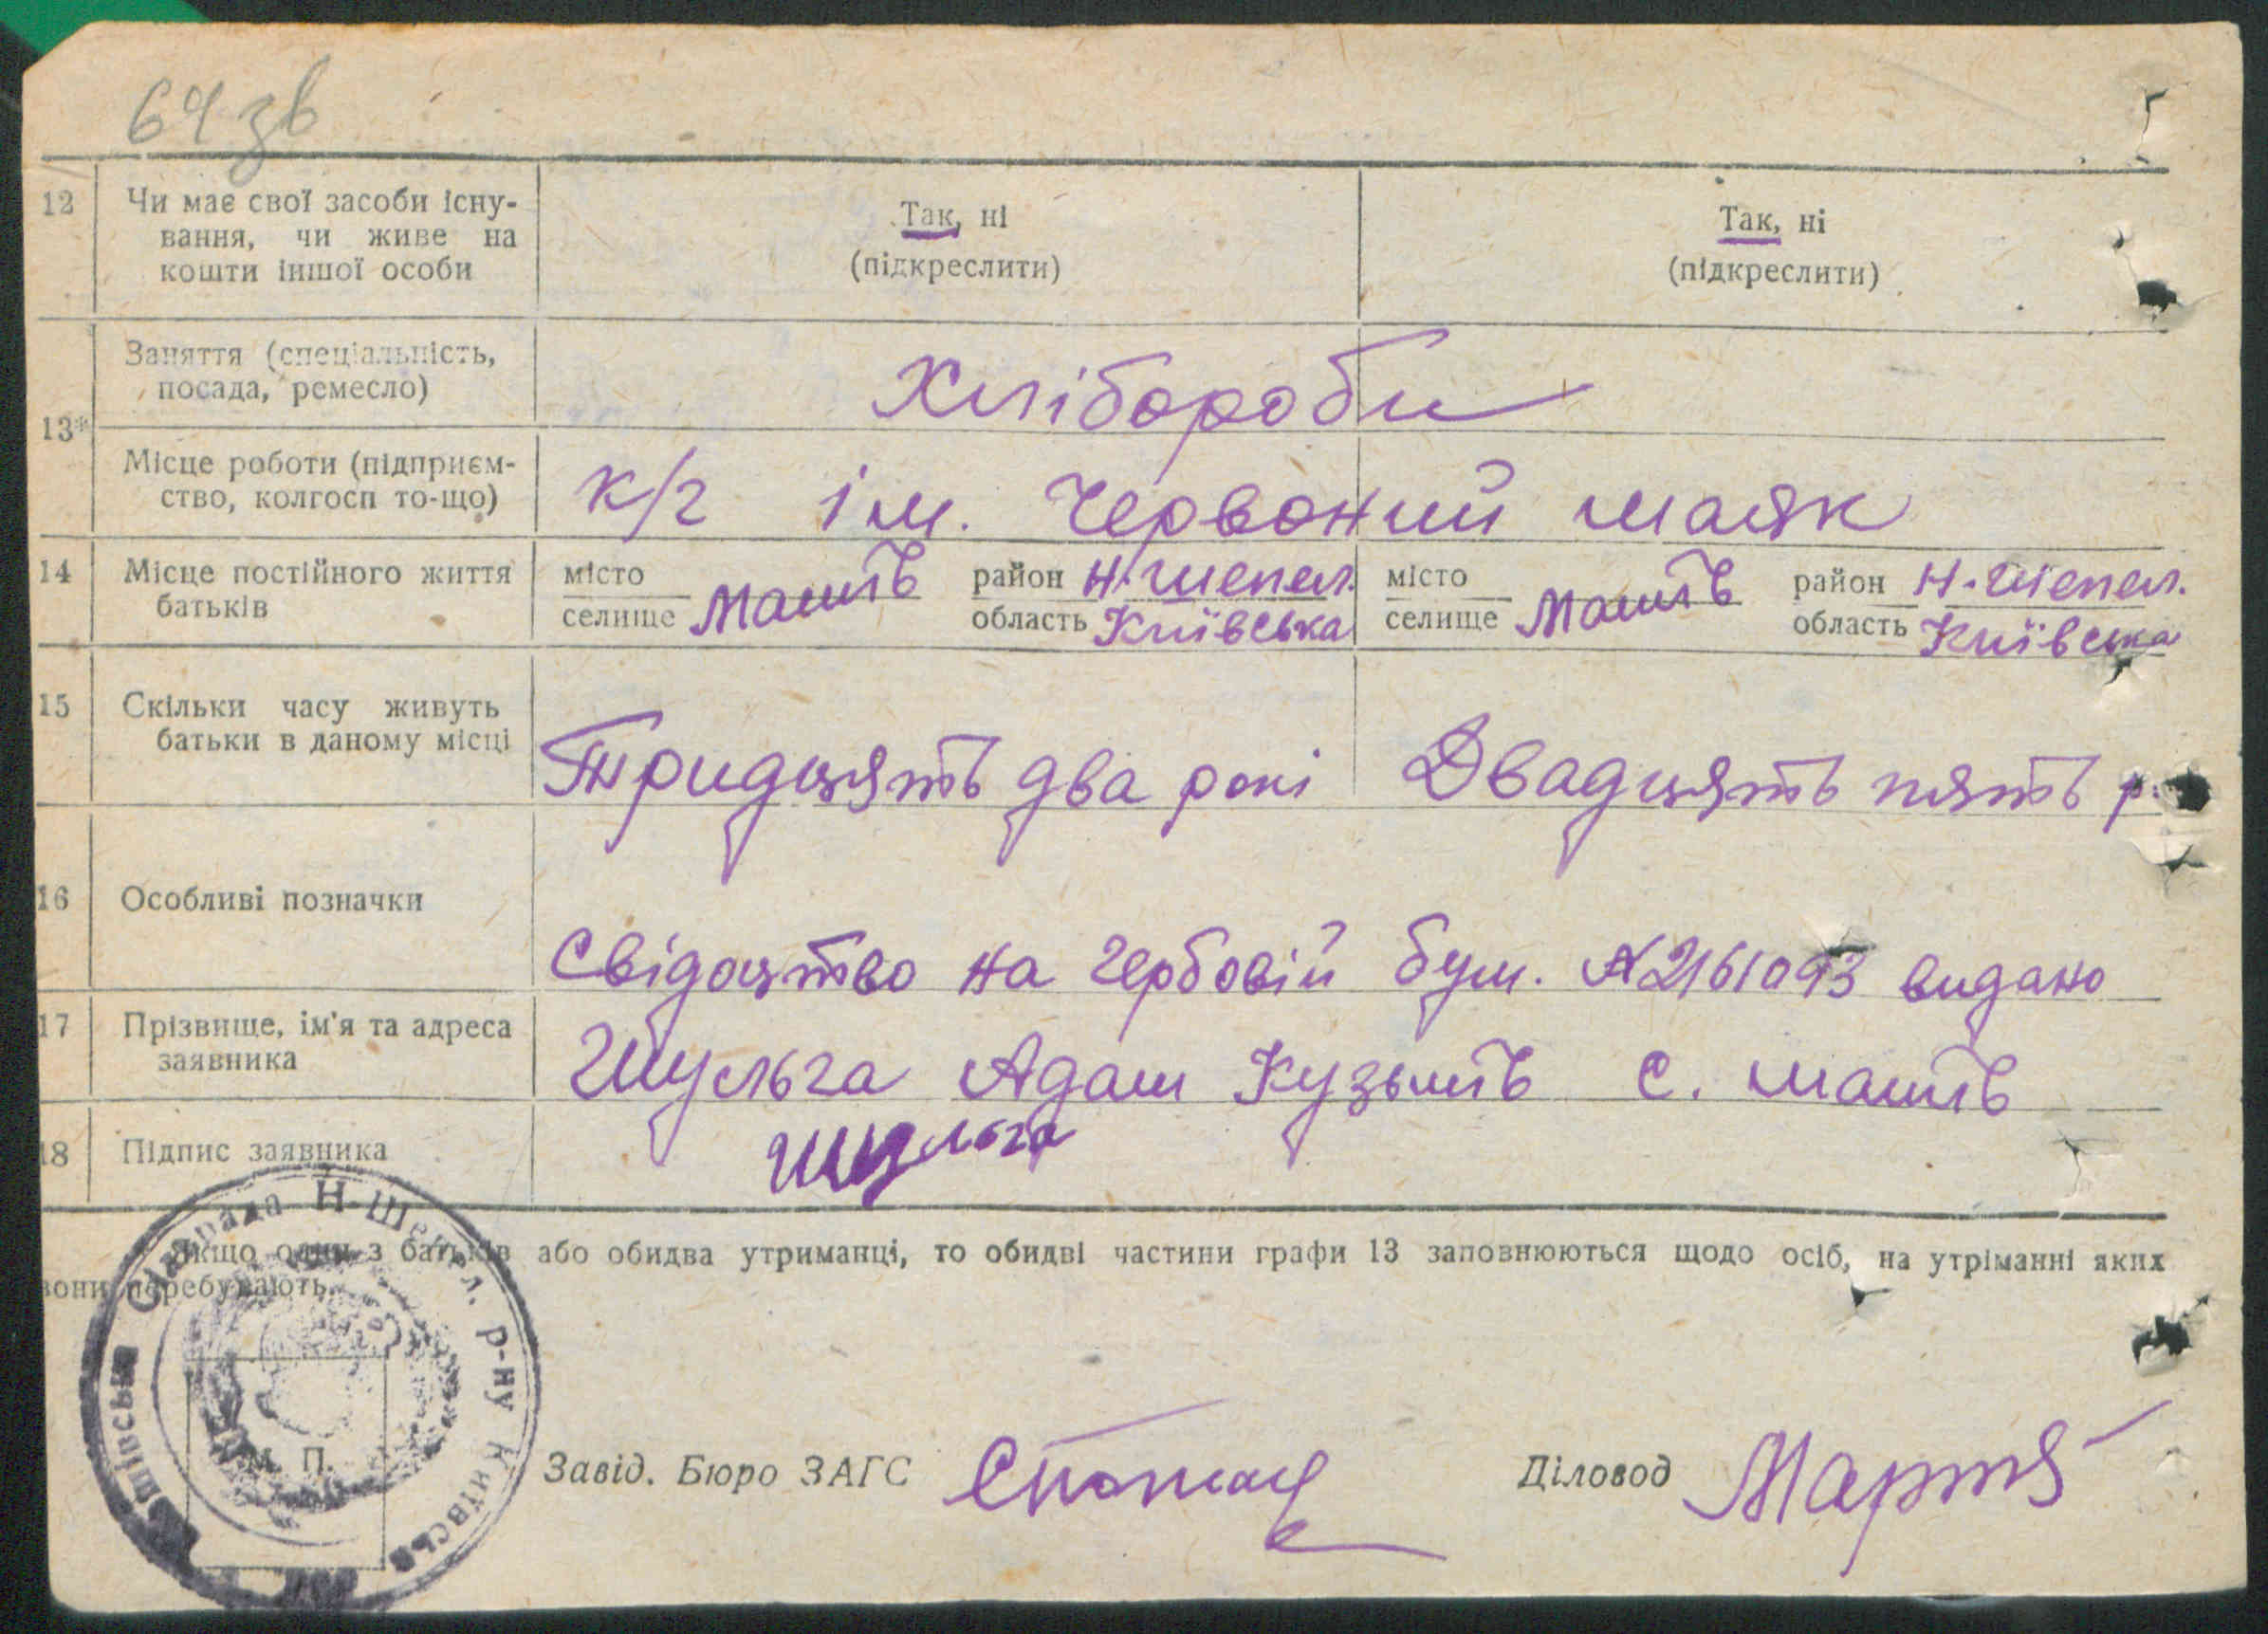 64 зв
12 Чи має свої засоби існу- Так, ні Так, ні
вання, чи живе на (підкреслити) (підкреслити)
кошти іншої особи
13* Заняття (спеціальність, Хлібороби
посада, ремесло)
Місце роботи (підприєм- к/г ім. Червоний маяк
ство, колгосп то-що)
14 Місце постійного життя місто район Н-Шепел. місто район Н-Шепел.
батьків селище Машів область Київська селище Машів область Київська
15 Скільки часу живуть
батьки в даному місці Тридцять два рокі Двадцять пять р.
16 Особливі позначки
Свідоцтво на гербовій бум. №2161093 видано
17 Прізвище, ім'я та адреса Шульга Адам Кузьмів с. Машів
заявника
18 Підпис заявника Шульга
Якщо один з батьків або обидва утриманці, то обидві частини графи 13 заповнюються щодо осіб, на утріманні яких
вони перебувають.
Сільрада Н-Шепел. р-ну Київсь
М. П.
Завід. Бюро ЗАГС Діловод